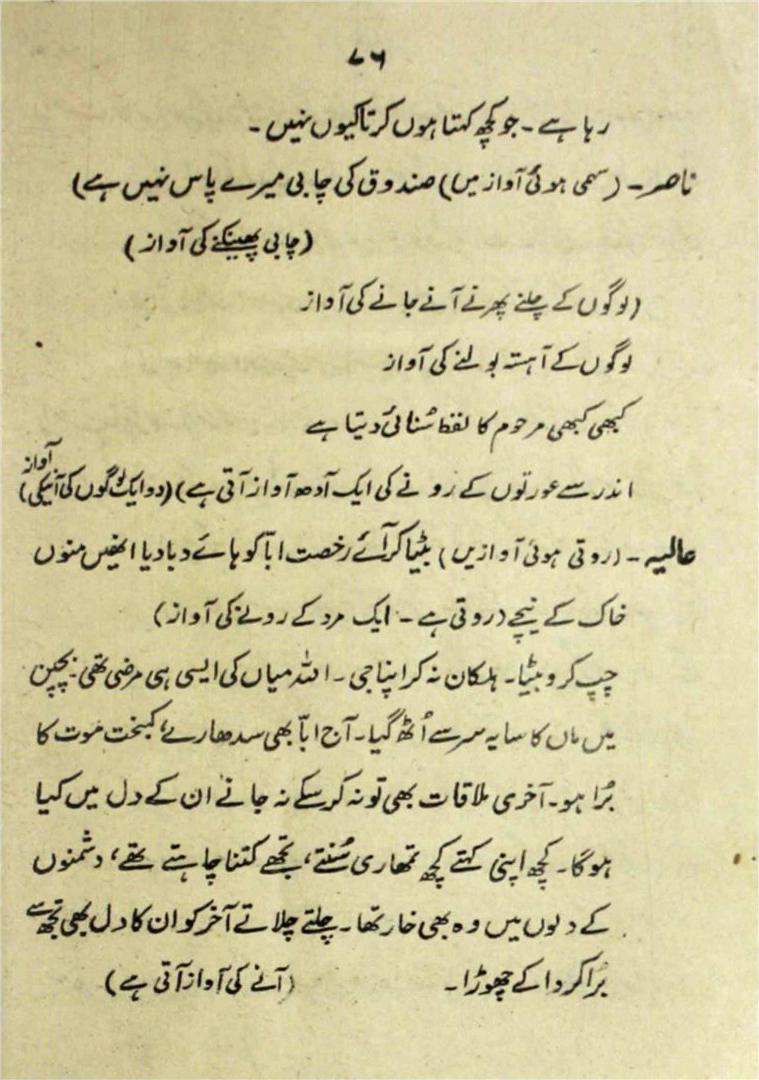 ۷۶
رہا ہے ۔ جو کچھ کہتا ہوں کرتا کیوں نہیں ۔
ناصر ۔ (سہمی ہوئی آواز میں) صندوق کی چابی میرے پاس نہیں ہے)
(چابی پھینکنے کی آواز)
(لوگوں کے چلنے پھرنے آنے جانے کی آواز
لوگوں کے آہستہ بولنے کی آواز
کبھی کبھی مرحوم کا لفظ سُنائی دیتا ہے
آواز
اندر سے عورتوں کے رونے کی ایک آدھ آواز آتی ہے) (دو ایک لوگوں کی آنیکی)
عالیہ ۔ (روتی ہوئی آواز میں) بٹیا کر آئے رخصت ابّا کو ہائے دبا دیا انھیں منوں
خاک کے نیچے (روتی ہے ۔ ایک مرد کے رونے کی آواز)
چپ کرو بٹیا ۔ ہلکان نہ کر اپنا جی ۔ اللہ میاں کی ایسی ہی مرضی تھی ۔ بچپن
میں ماں کا سایہ سر سے اُٹھ گیا ۔ آج ابّا بھی سدھارے، کمبخت موت کا
بُرا ہو ۔ آخری ملاقات بھی تو نہ کر سکے نہ جانے ان کے دل میں کیا
ہوگا ۔ کچھ اپنی کہتے کچھ تمھاری سُنتے، تجھے کتنا چاہتے تھے، دشمنوں
کے دلوں میں وہ بھی خار تھا ۔ چلتے چلاتے آخر کو ان کا دل بھی تجھ سے
بُرا کر وا کے چھوڑا ۔ (آنے کی آواز آتی ہے)